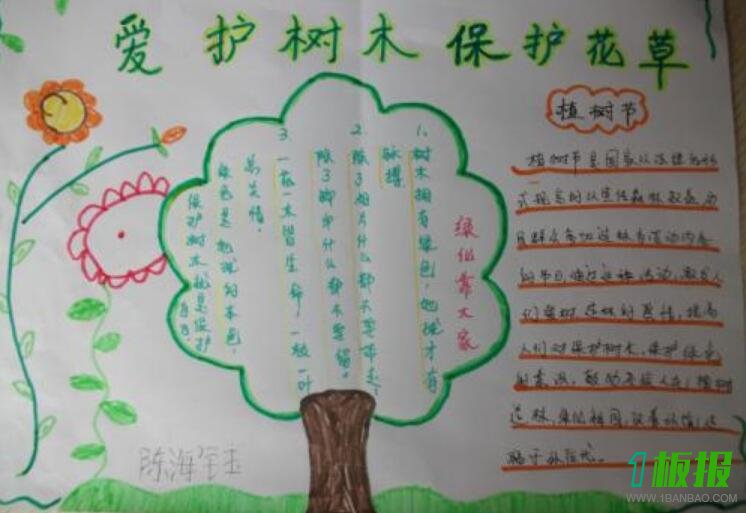 爱护树木保护花草
植树节
植树节是国家以法律的形
式规定的以宣传森林效益,动
员群众参加造林为活动内容
的节日,通过这种活动,激发人
们爱树造林的热情,提高
人们对保护树木,保护绿色
的意识,鼓励
造林,绿化祖国,改善环境,造
福子孙后代。
绿化靠大家
1、树木拥有绿色,地球才有
脉搏
2、除了相片什么都不要带走,
除了脚印什么都不要留。
3、一花一木皆生命,一枝一叶
总关情,
绿色是地球的本色,
保护树木就是保护
自己。
陈海
1板报
WWW.1BANBAO.COM